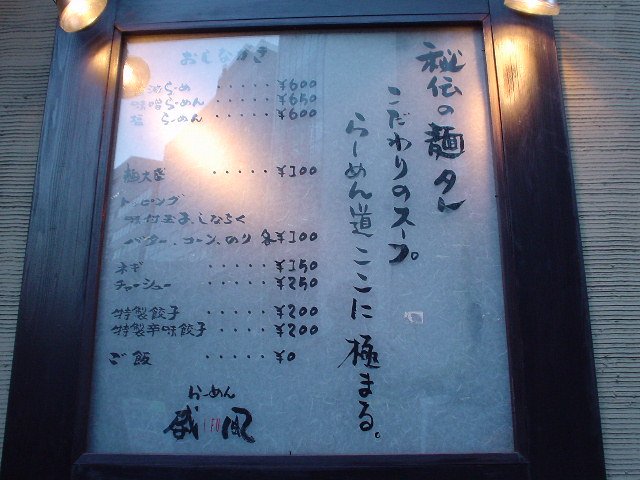 秘伝の麺タレ
こだわりのスープ。
らーめん道ここに極まる。
おしながき
油らーめ ・・・・・ ¥600
味噌らーめん ・・・・・ ¥650
塩 らーめん ・・・・・ ¥600
麺大盛 ・・・・・ ¥100
トッピング
味付玉子、しなちく
バター、コーン、のり 各¥100
ネギ ・・・・・ ¥150
チャーシュー ・・・・・ ¥250
特製餃子 ・・・・・ ¥200
特製辛味餃子 ・・・・・ ¥200
ご飯 ・・・・・ ¥0
らーめん
威風